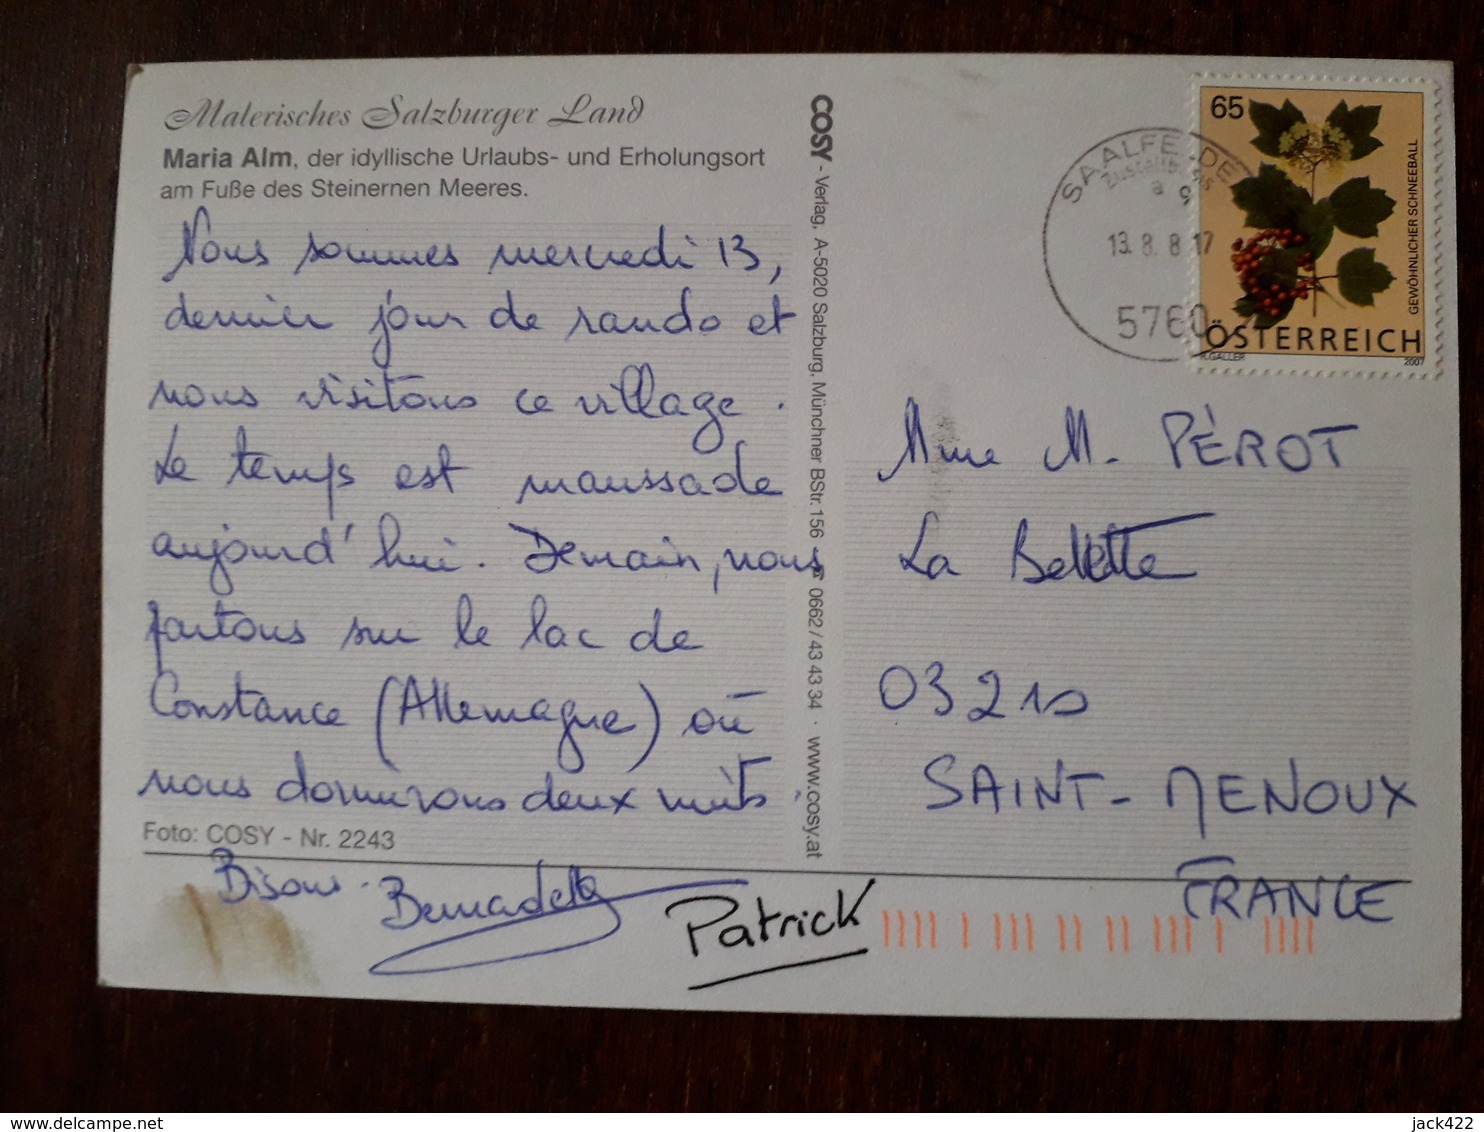 Malerisches Salzburger Land
Maria Alm, der idyllische Urlaubs- und Erholungsort
am Fuße des Steinernen Meeres.
Nous sommes mercredi 13,
dernier jour de rando et
nous visitons ce village.
Le temps est maussade
aujourd'hui. Demain, nous
partons sur le lac de
Constance (Allemagne) où
nous dormirons deux nuits.
Foto: COSY - Nr. 2243
Bisous.
Bernadette
Patrick
COSY - Verlag, A-5020 Salzburg, Münchner BStr. 156 0662/43 43 34 · www.cosy.at
SAALFELDEN
a
13. 8. 8 17
5760
65
GEWÖHNLICHER SCHNEEBALL
ÖSTERREICH
GALLER 2007
Mme M. PÉROT
La Belette
03210
SAINT-MENOUX
FRANCE
delcampe.net
jack422